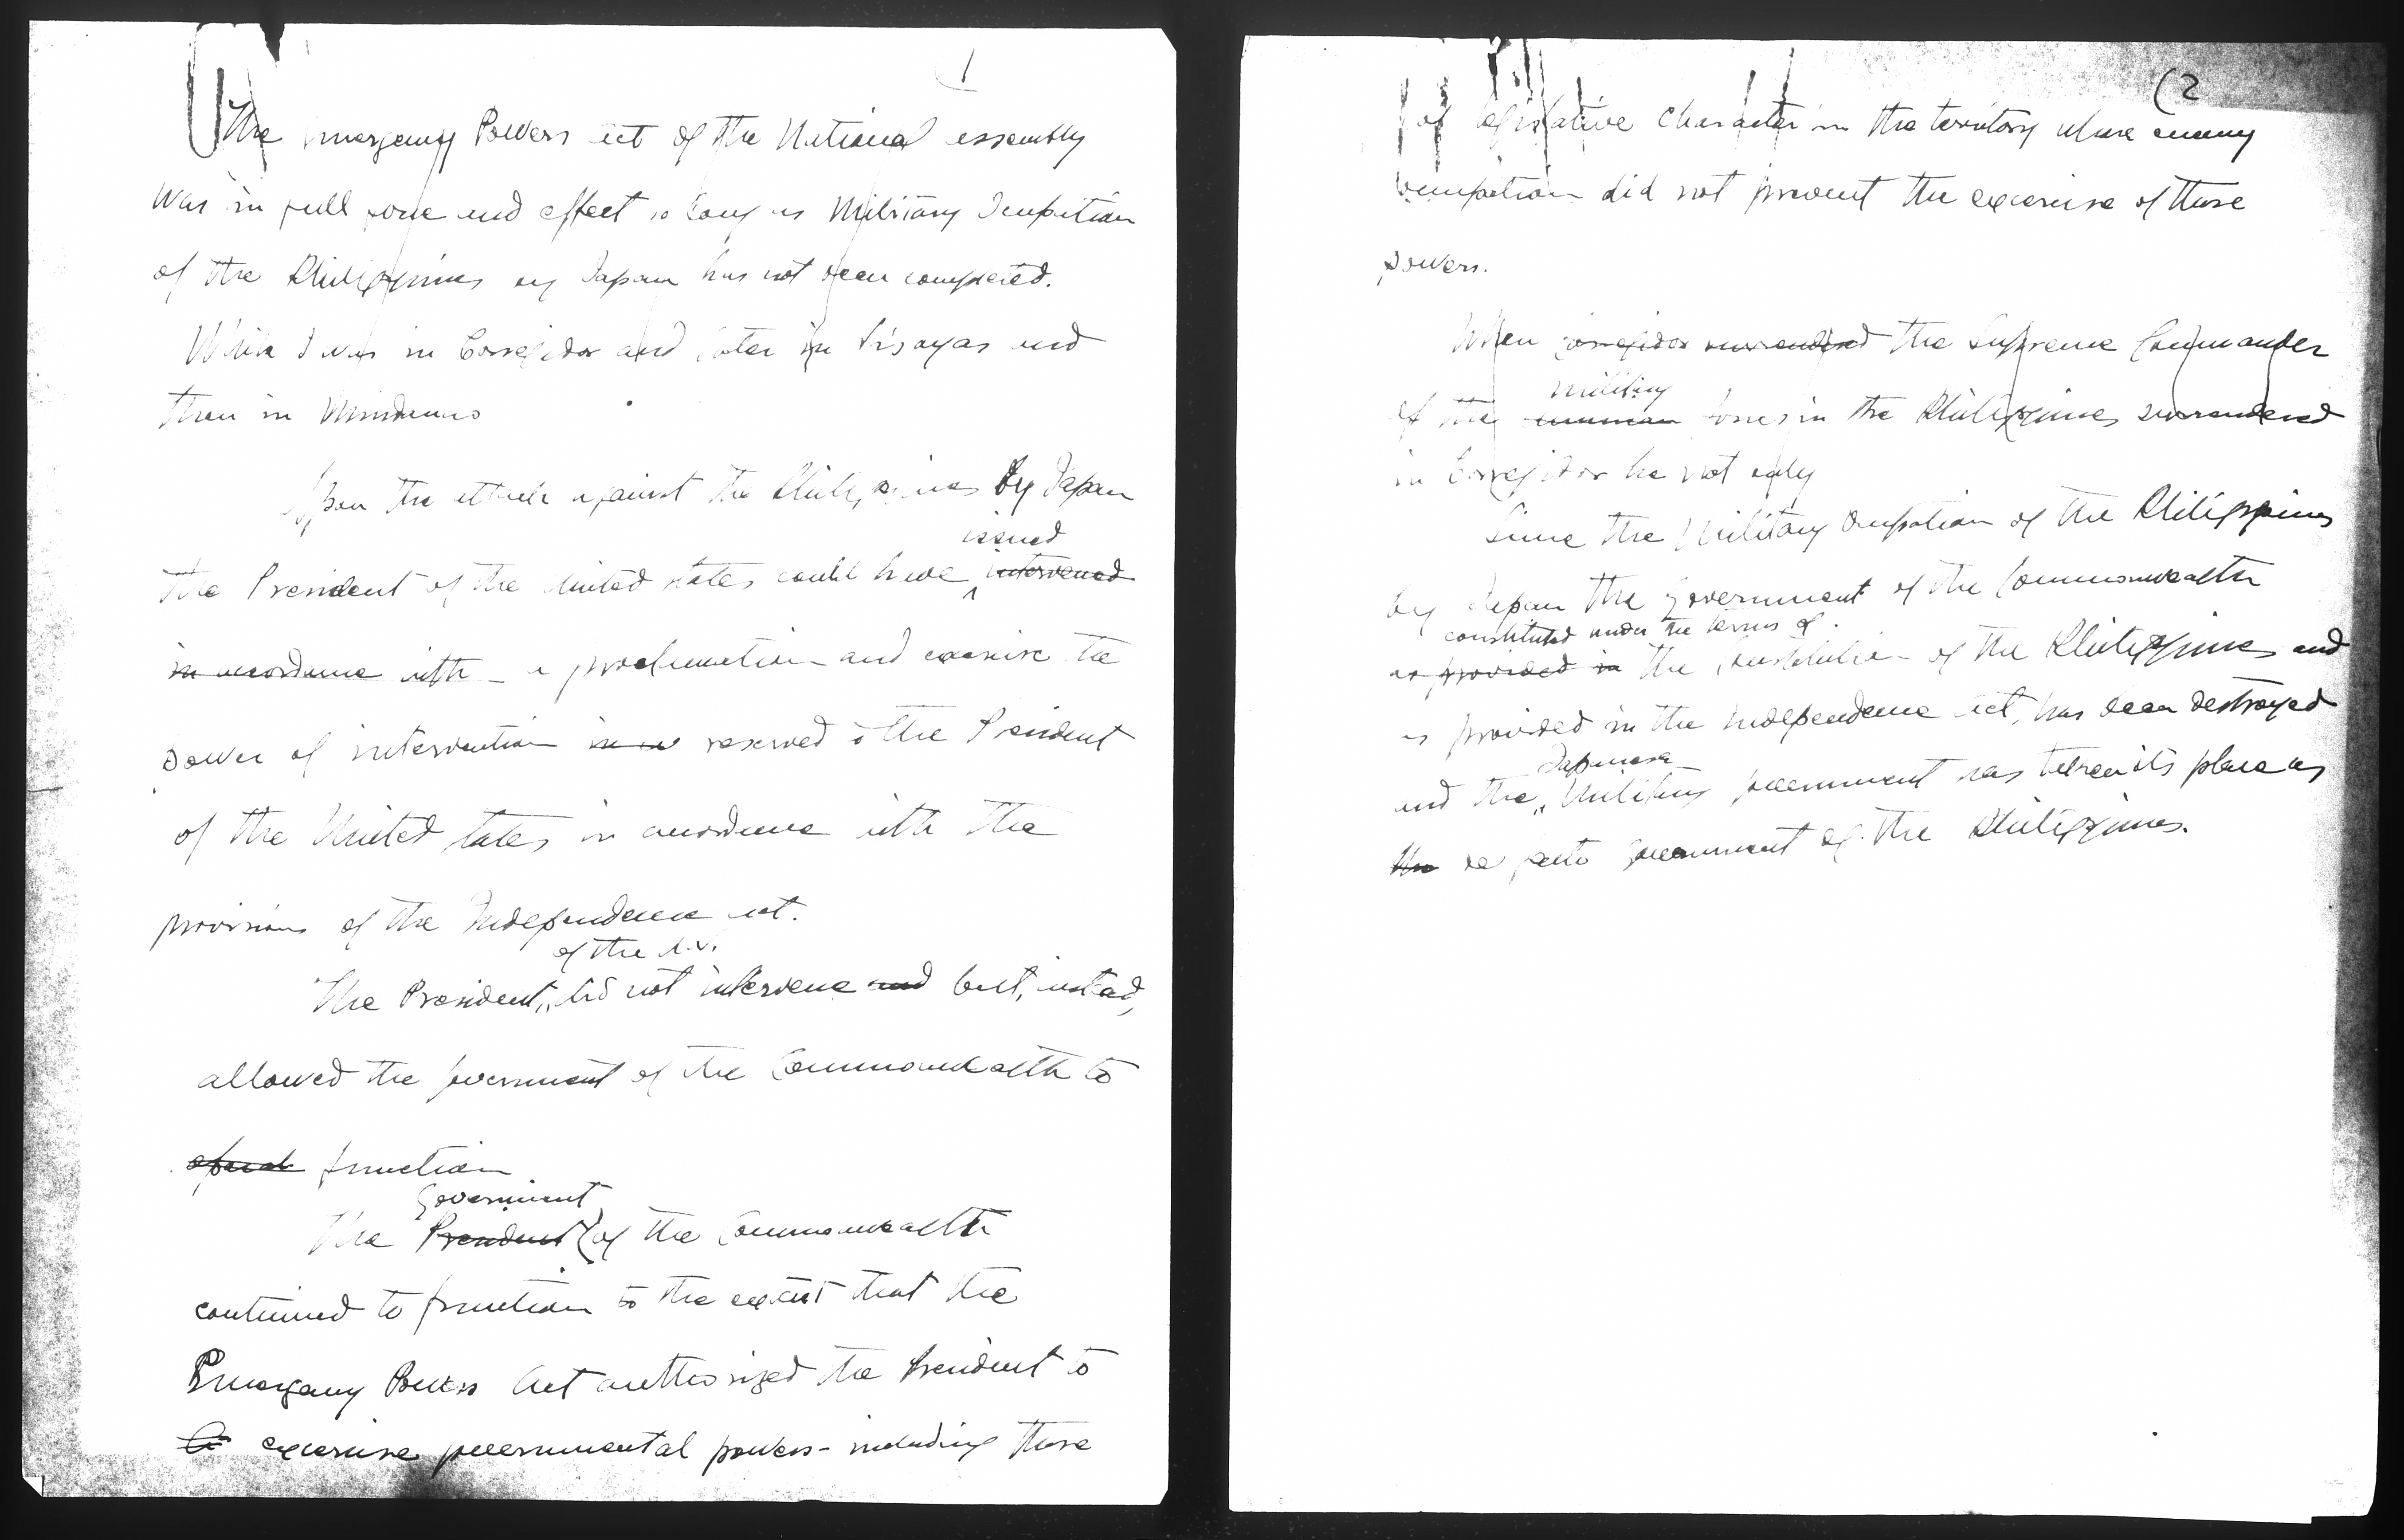 1
The Emergency Powers Act of the National Assembly
was in full force and effect so long as Military Occupation
of the Philippines by Japan has not been completed.
While I was in Corregidor and later in Visayas and
then in Mindanao
Upon the attack against the Philippines by Japan
issued
the President of the United States could have intervened
in accordance with a proclamation and exercise the
power of intervention in reserved to the President
of the United States in accordance with the
provisions of the Independence Act.
of the U.S.
The President, did not intervene and but, instead,
allowed the government of the Commonwealth to
operate function
Government
The President of the Commonwealth
continued to function to the extent that the
Emergency Powers Act authorized the President to
to exercise governmental powers - including those
(2
of legislative character in the territory where enemy
occupation did not prevent the exercise of those
powers.
When Corregidor surrendered the Supreme Commander
military
of the forces in the Philippines surrendered
in Corregidor he not only
Since the Military Occupation of the Philippines
by Japan the Government of the Commonwealth
constituted under the terms of
as provided in the Constitution of the Philippines and
as provided in the Independence Act, has been destroyed
Japanese
and the Military government has taken its place as
the de facto Government of the Philippines.